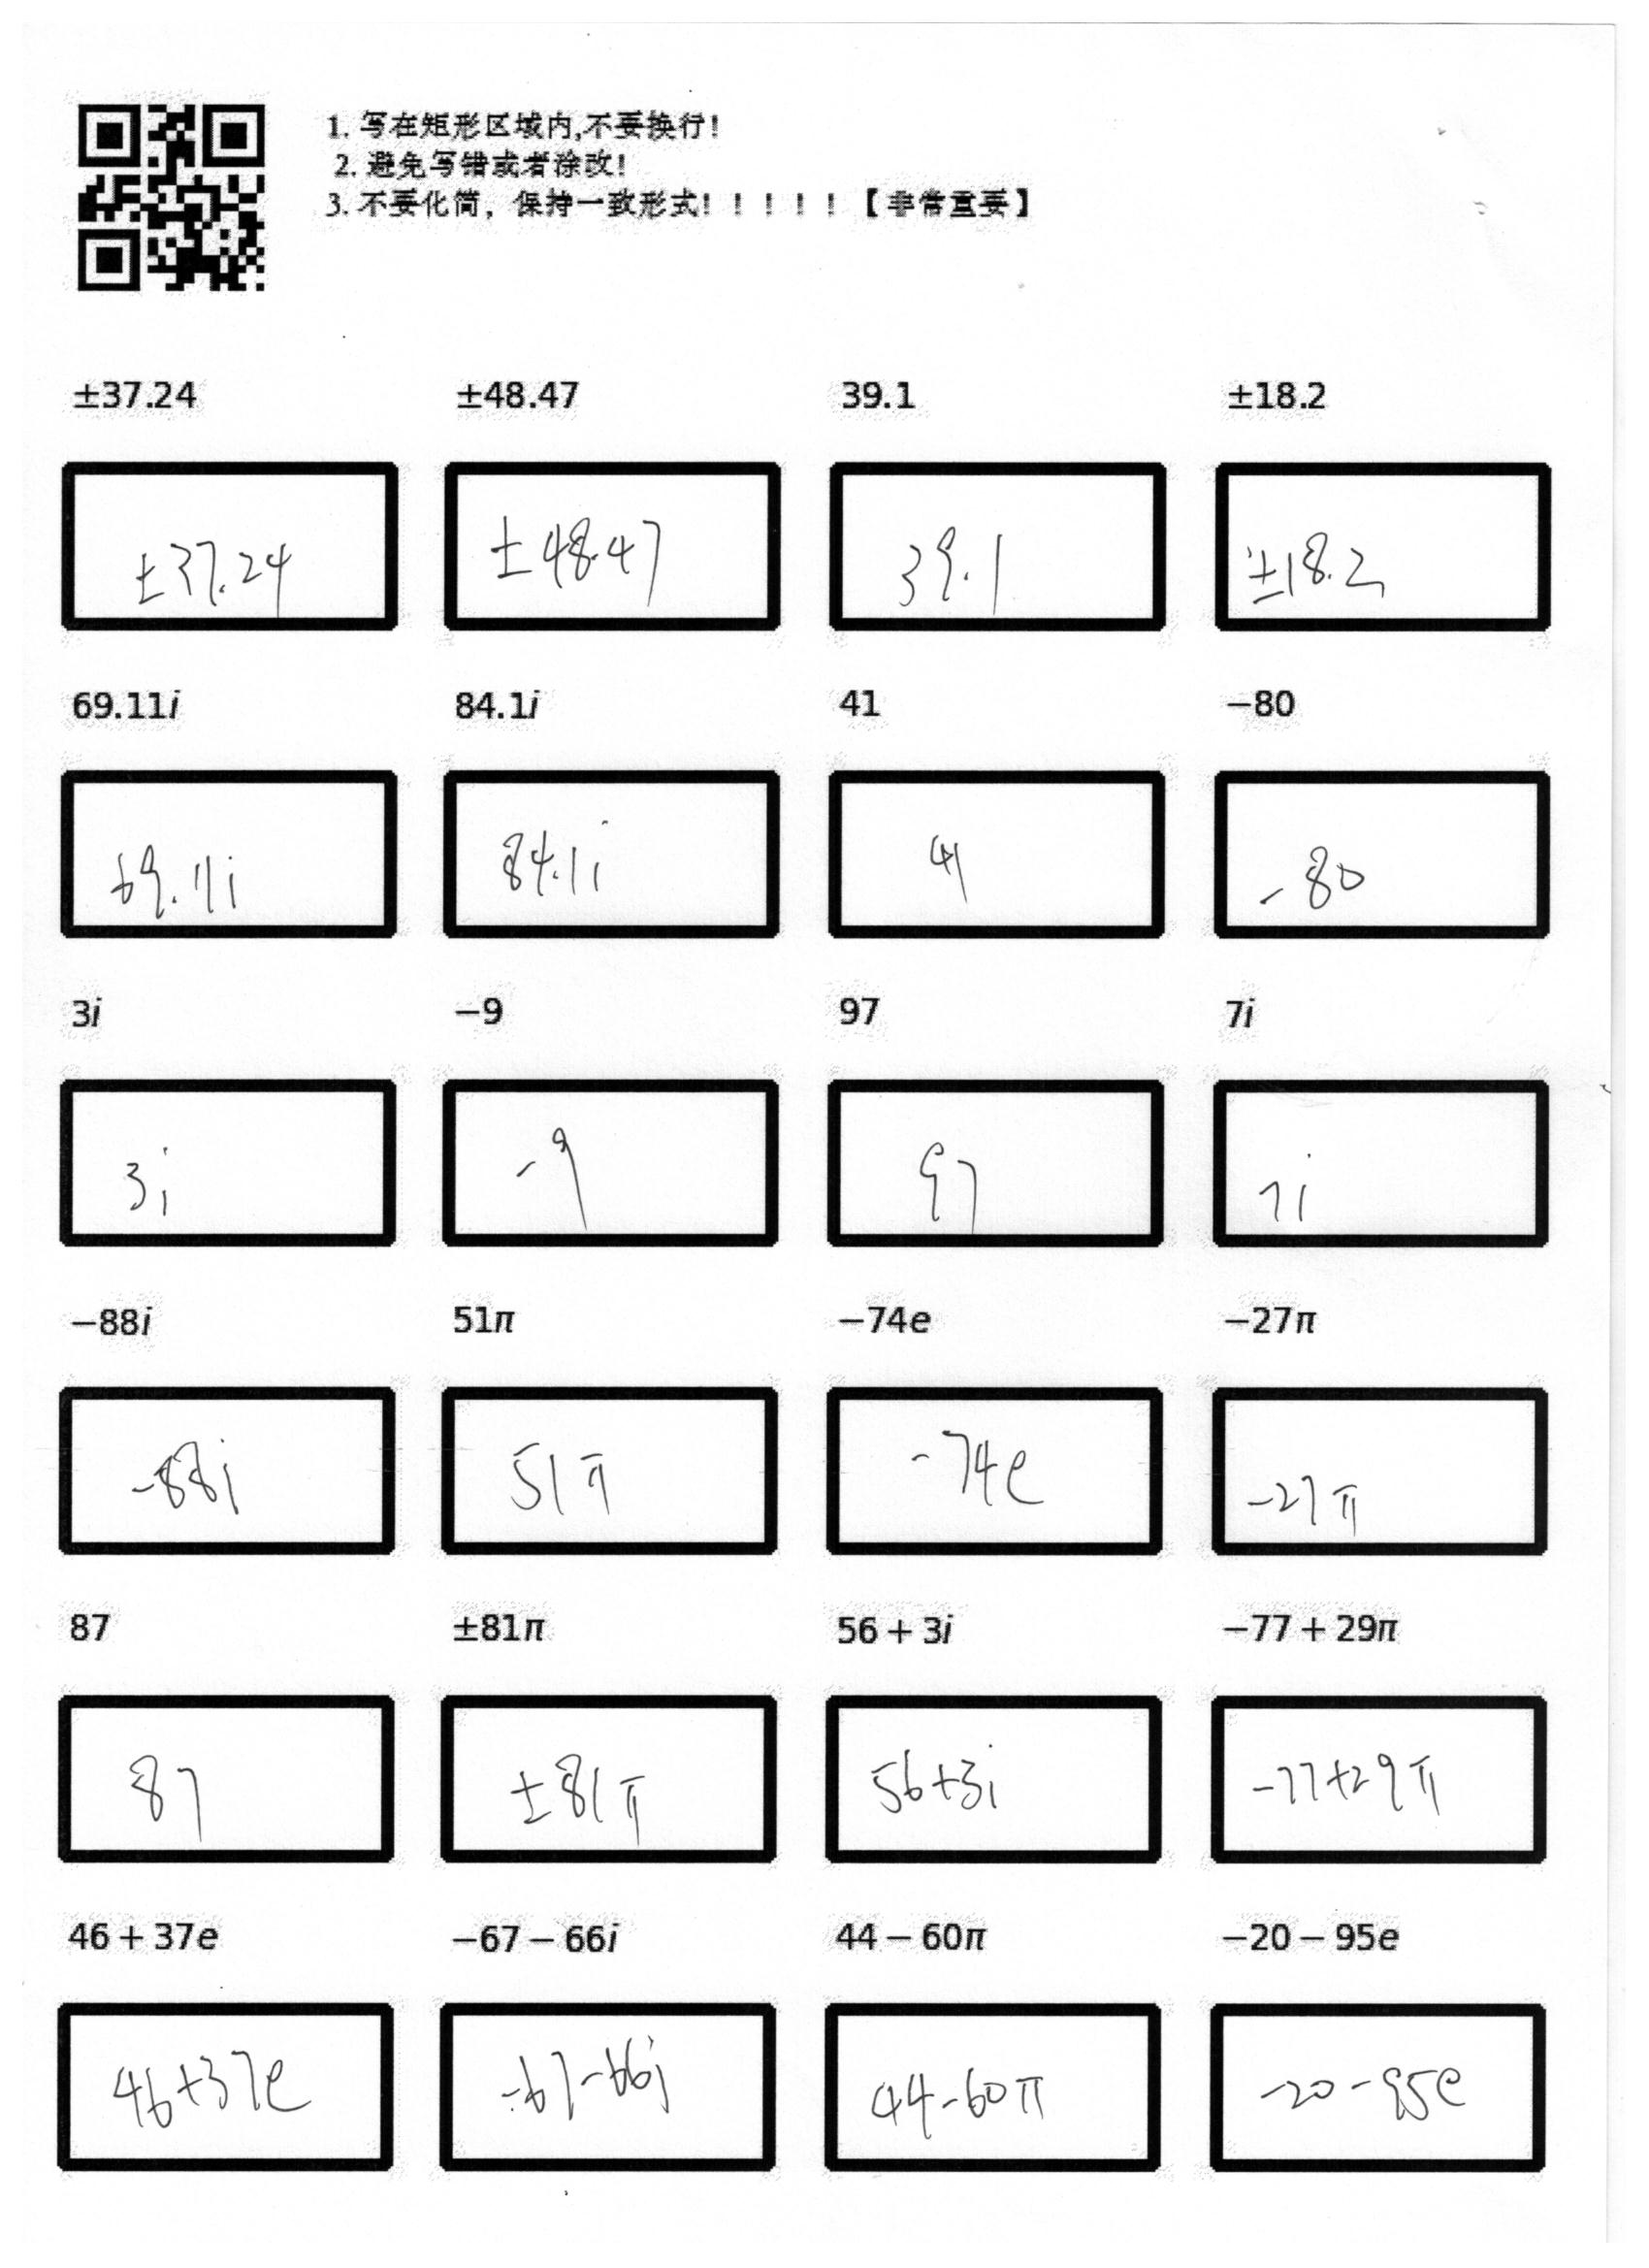 1. 写在矩形区域内,不要换行!
2. 避免写错或者涂改!
3. 不要化简，保持一致形式！！！！！【非常重要】
±37.24 ±48.47 39.1 ±18.2
±37.24 ±48.47 39.1 ±18.2
69.11i 84.1i 41 −80
69.11i 84.1i 41 -80
3i −9 97 7i
3i -9 97 7i
−88i 51π −74e −27π
-88i 51π -74e -27π
87 ±81π 56 + 3i −77 + 29π
87 ±81π 56+3i -77+29π
46 + 37e −67 − 66i 44 − 60π −20 − 95e
46+37e -67-66i 44-60π -20-95e